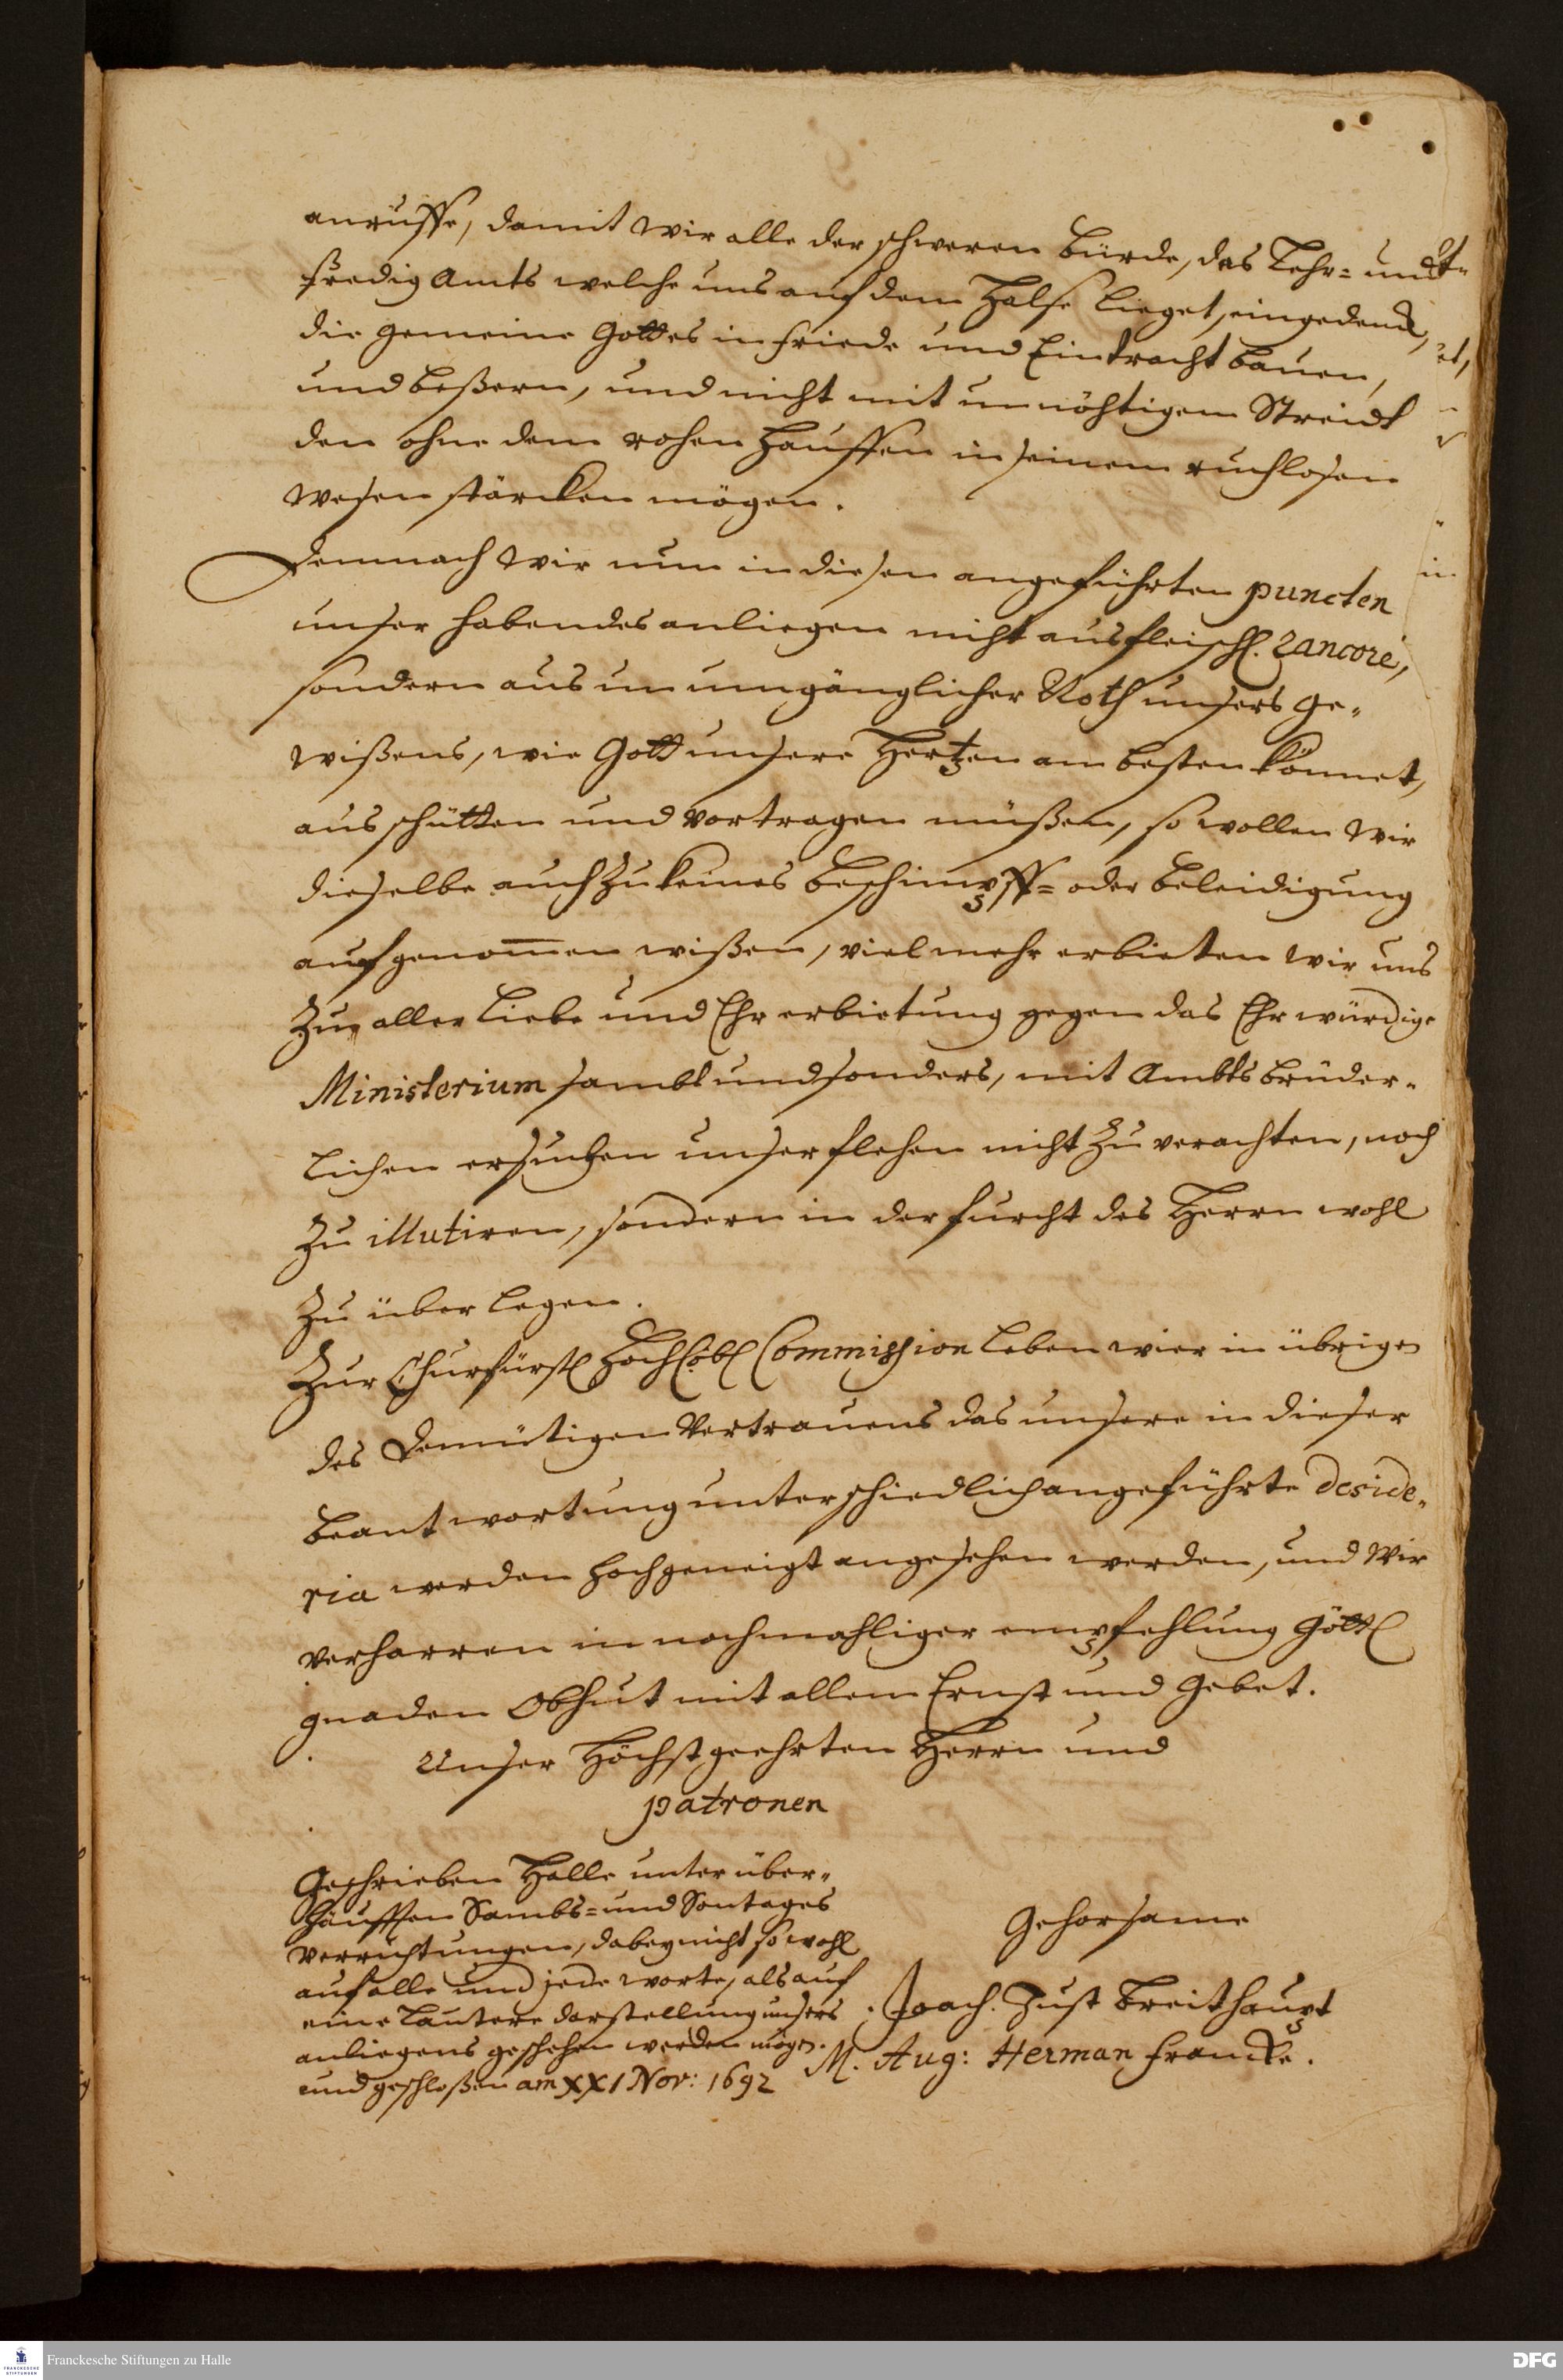 anruffe, damit wir alle der schweren Bürde, des Lehr= und
Predig Amts welche uns auf dem Halse lieget, eingedenck,
die Gemeine Gottes in Friede und Eintracht bauen,
und beßern, und nicht mit unnöhtigem Streidt
den ohne dem rohen Hauffen in seinem ruchlosen
Wesen stärcken mögen.
Demnach wir nun in diesen angeführten puncten
unser habendes anliegen nicht aus fleischl. rancore,
sondern aus unumgänglicher Noth unsers Ge-
wißens, wie Gott unsere Hertzen am besten könnet,
ausschütten und vortragen müßen, so wollen wir
dieselbe auch zu keines beschimpff= oder beleidigung
aufgenom̅en wißen, vielmehr erbieten wir uns
Zu aller Liebe und Ehrerbietung gegen das Ehrwürdige
Ministerium sambt und sonders, mit Ambts brüder-
lichen ersuchen unser flehen nicht zu verachten, noch
Zu illutiren, sondern in der furcht des Herrn wohl
Zu überlegen.
Zur Churfürstl Hochlöbl Commission leben wier in übrigen
des Demütigen Vertrauens das unsere in dieser
beantwortung unterschiedlich angeführte deside-
ria werden hochgeneigt angesehen werden, und Wir
verharren in nochmahliger empfehlung Göttl
gnaden Obhut mit allem Ernst und Gebet.
Unser Höchstgeehrten Herrn und
patronen
Geschrieben Halle unter über-
häufften Sambs= und Sontages
Verrichtungen, dabey nicht so wohl
auf alle und jede worte, als auf
eine lautere darstellung unsers
anliegens gesehen werden mögen.
und geschloßen am XXI Nov: 1692
Gehorsame
Joach. Just Breithaupt
M. Aug: Herman Francke.
Franckesche Stiftungen zu Halle
FRANCKESCHE STIFTUNGEN
DFG